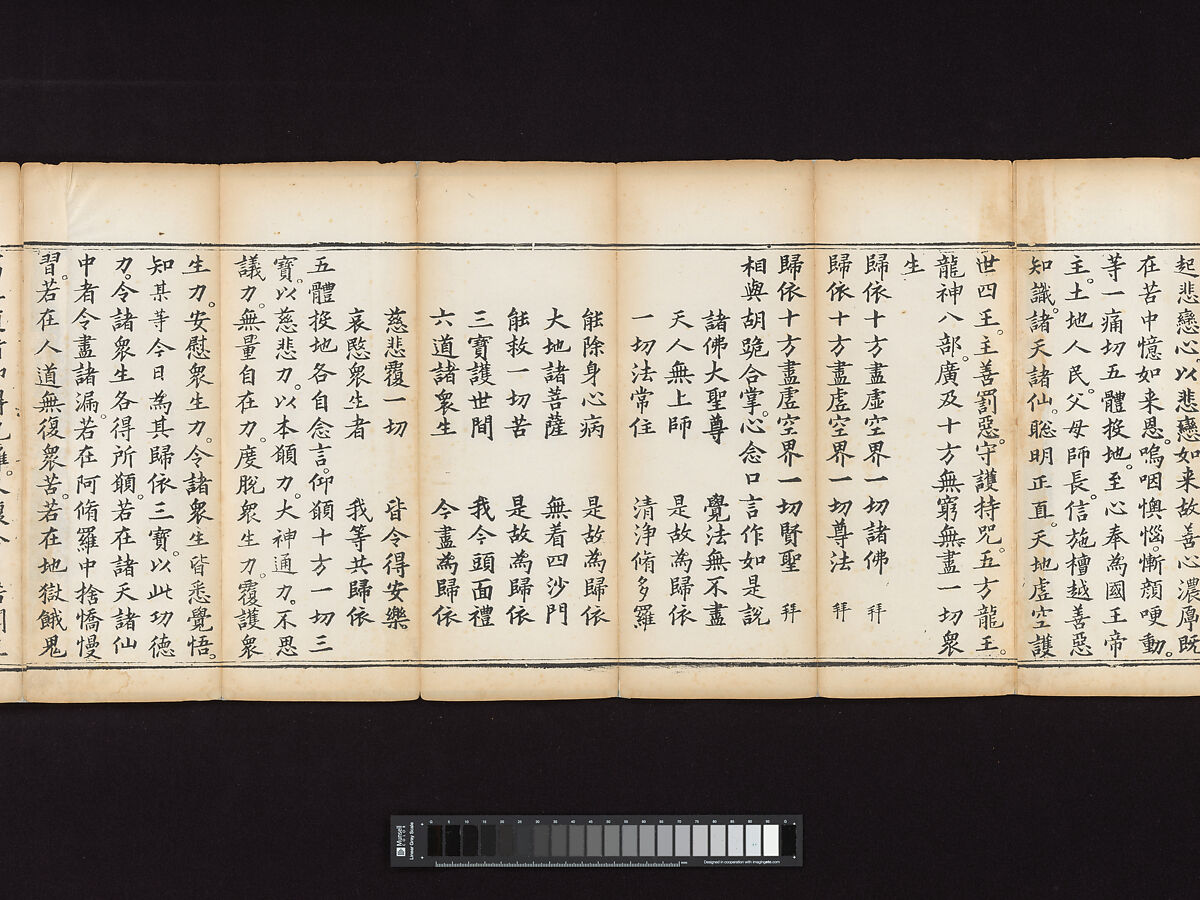 起悲戀心以悲戀如来故善心濃厚既
在苦中憶如来恩。嗚咽懊惱。慚顔哽動。
等一痛切五體投地。至心奉為國王帝
主。土地人民。父母師長。信施檀越善惡
知識。諸天諸仙。聡明正直。天地虚空護
世四王。主善罰惡。守護持咒。五方龍王。
龍神八部。廣及十方無窮無盡一切衆
生
歸依十方盡虛空界一切諸佛 拜
歸依十方盡虛空界一切尊法 拜
歸依十方盡虛空界一切賢聖 拜
相與胡跪合掌。心念口言作如是說
諸佛大聖尊 覺法無不盡
天人無上師 是故為歸依
一切法常住 清淨脩多羅
能除身心病 是故為歸依
大地諸菩薩 無着四沙門
能救一切苦 是故為歸依
三寶護世間 我今頭面禮
六道諸衆生 今盡為歸依
慈悲覆一切 皆令得安樂
哀愍衆生者 我等共歸依
五體投地各自念言。仰願十方一切三
寶。以慈悲力。以本願力。大神通力。不思
議力。無量自在力。度脫衆生力。覆護衆
生力。安慰衆生力。令諸衆生皆悉覺悟。
知某等今日為其歸依三寶。以此功德
力。令諸衆生各得所願。若在諸天諸仙
中者令盡諸漏。若在阿脩羅中捨憍慢
習。若在人道無復衆苦。若在地獄餓鬼
Munsell
COLOR
Linear Gray Scale
Designed in cooperation with imagingetc.com